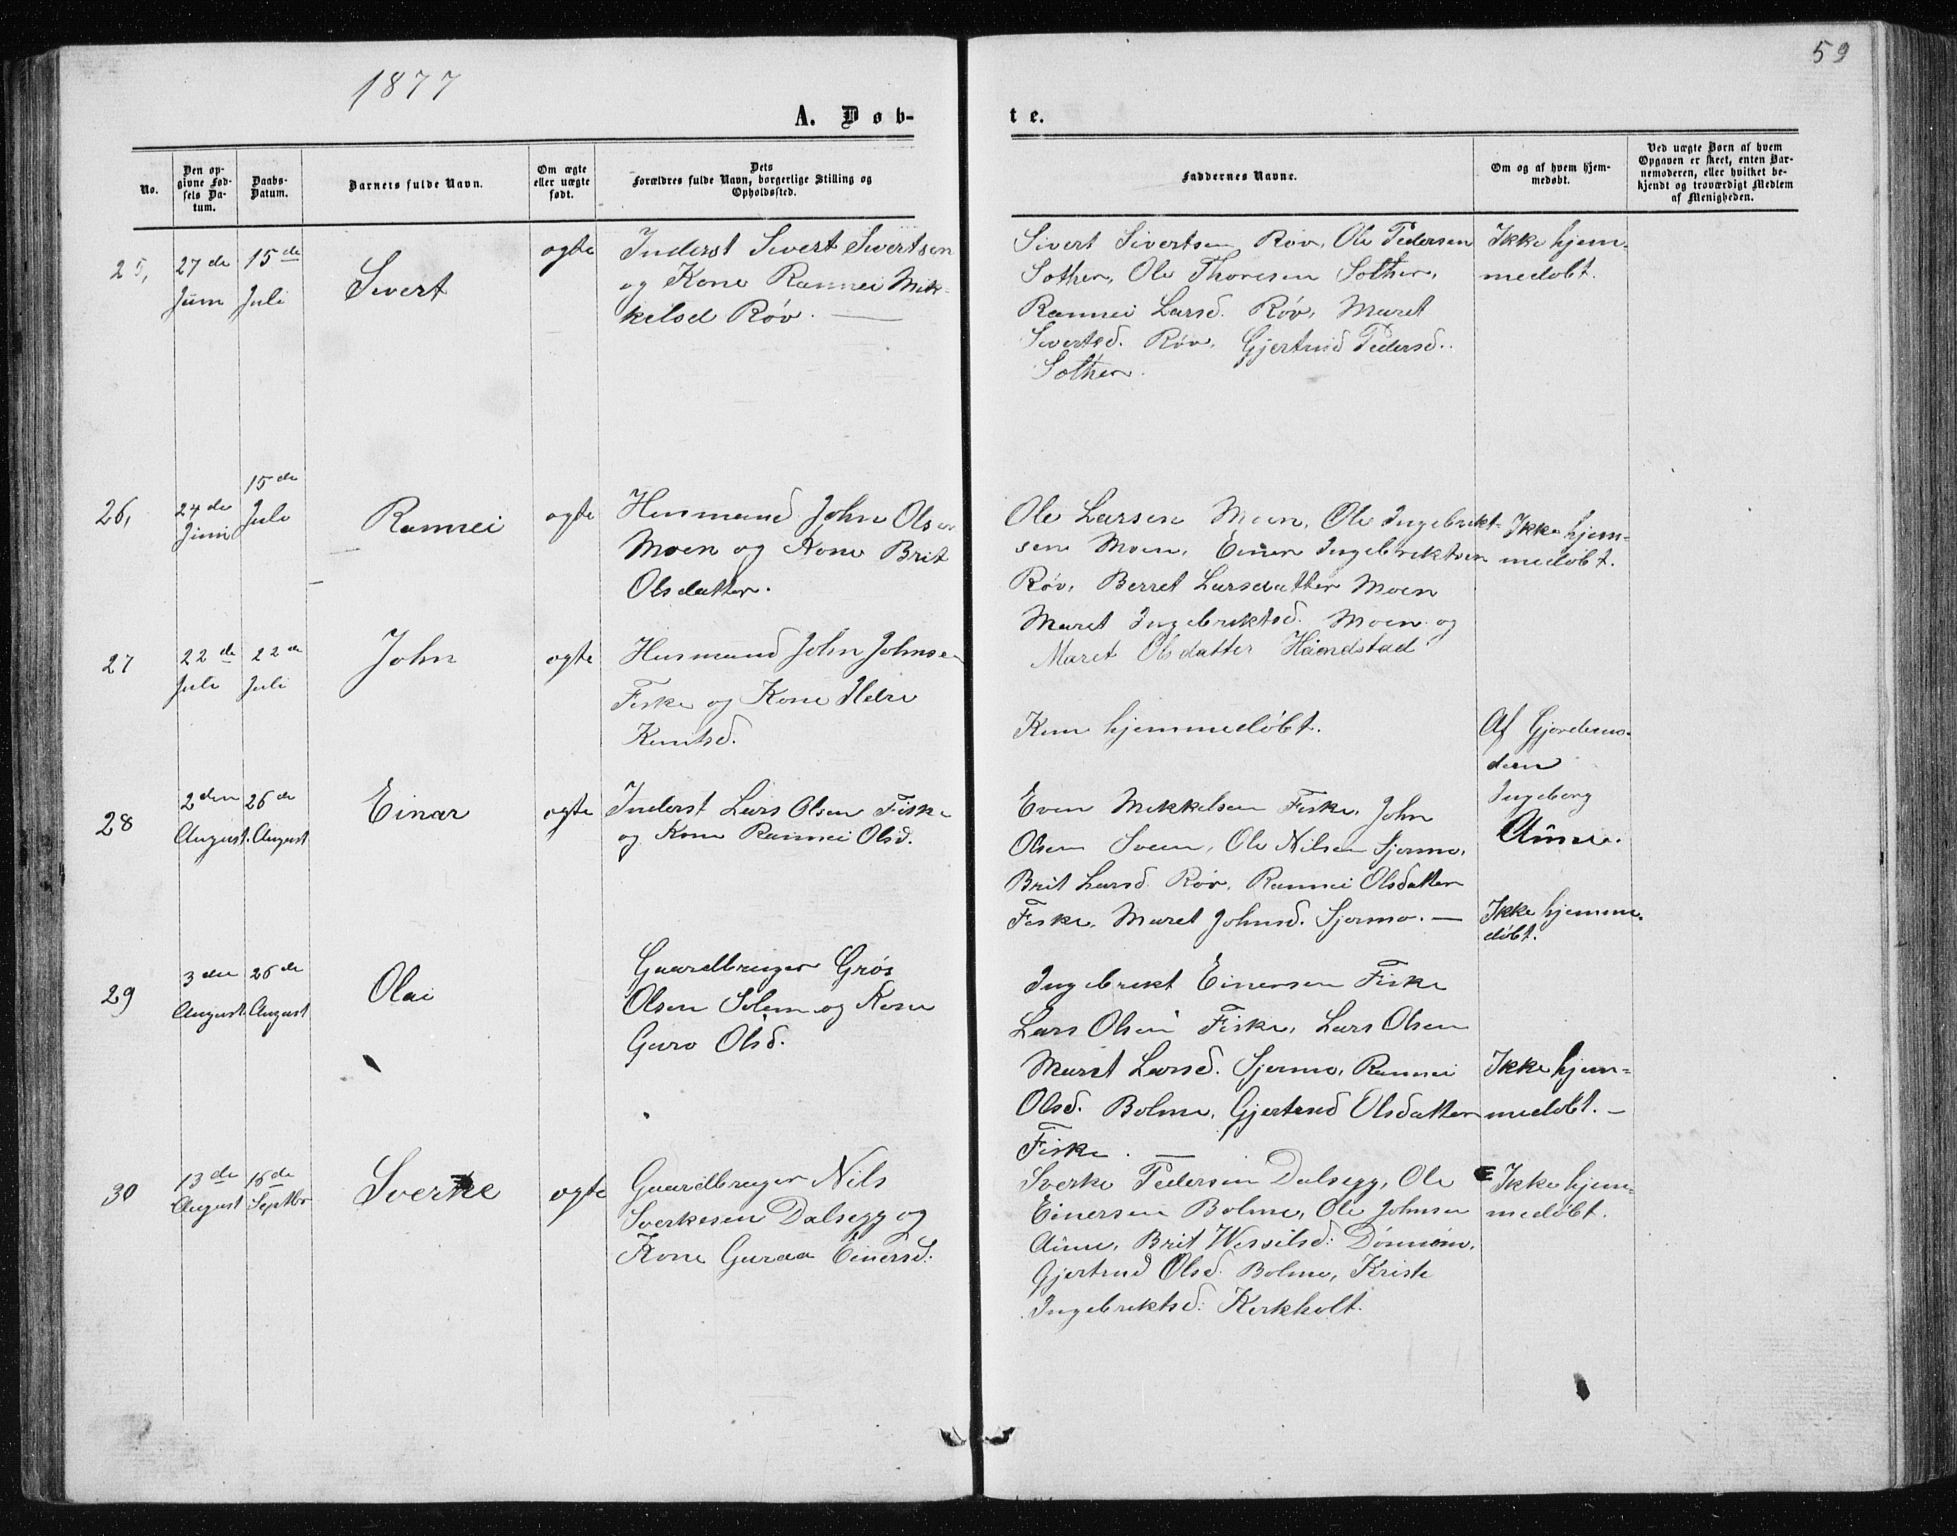 1877
59
A. Døb-
te.
No.
Den op-
givne Fød-
sels Da-
tum.
Daabs-
Datum.
Barnets fulde Navn.
Om ægte
eller uægte
født.
Dets
Forældres fulde Navn, borgerlige Stilling og
Opholdssted.
Faddernes Navne.
Om og af hvem hjem-
medøbt.
Ved uægte Børn af hvem
Opgaven er skeet, enten Bar-
nemoderen, eller hvilket be-
kjendt og troværdigt Medlem
af Menigheden.
25,
27de
Juni
15de
Juli
Sivert
ogte
Inderst Sivert Sivertsen
og Kone Rannei Mik-
kelsd Røv.
Sivert Sivertsen Røv, Ole Pedersen
Sother, Ole Thoresen Sother,
Rannei Larsd. Røv, Maret
Sivertsd. Røv, Gjertrud Pedersd.
Sother.
Ikke hjem-
medøbt.
26,
24de
Juni
15de
Juli
Rannei
ogte
Husmand John Olsen
Moen og Kone Brit
Olsdatter.
Ole Larsen Moen, Ole Ingebrikt-
sen Moen, Einer Ingebriktsen
Røv, Berret Larsdatter Moen
Maret Ingebriktsd. Moen og
Maret Olsdatter Haandstad
Ikke hjem-
medøbt.
27
22de
Juli
22de
Juli
John
ogte
Husmand John Johnsen
Fiske og Kone
Knutsd.
Kun hjemmedøbt.
Af Gjordemo-
deren
Ingeborg
Aune.
28
2den
August.
26de
August
Einar
ogte
Inderst Lars Olsen Fiske
og Kone Rannei Olsd.
Even Mikkelsen Fiske, John
Olsen Sveen, Ole Nilsen Sjermo,
Brit Larsd. Røv, Rannei Olsdatter
Fiske, Maret Johnsd. Sjermo. —
Ikke hjemme-
døbt.
29
3den
August
26de
August
Olai
Gaardbruger Grøs
Olsen Solem og Kone
Guro Olsd.
Ingebrikt Einersen Fiske
Lars Olsen Fiske, Lars Olsen
Maret Larsd. Sjermo, Rannei
Olsd. Bolme, Gjertrud Olsdatter
Fiske. —
Ikke hjem-
medøbt. —
30
13de
August
16de
Septbr
Sverke
ogte
Gaardbruger Nils
Sverkesen Dalsegg og
Kone Guraa Einersd:
Sverke Pedersen Dalsegg, Ole
Einersen Bolme, Ole Johnsen
Aune, Brit Wessilsd: Dønnem,
Gjertrud Olsd. Bolme, Kristi
Ingebriktsd: Kirkholt.
Ikke hjem-
medøbt.